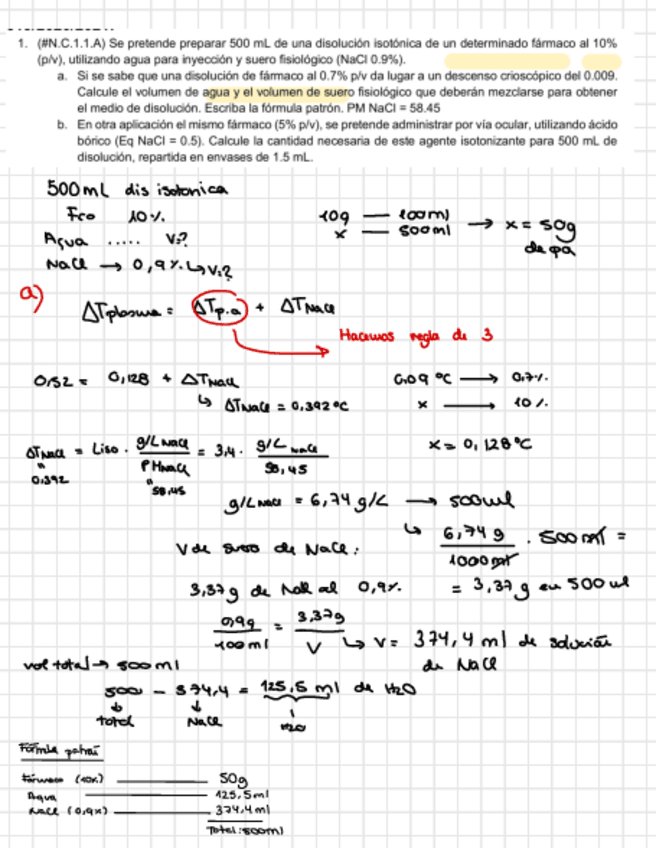 1. (#N.C.1.1.A) Se pretende preparar 500 mL de una disolución isotónica de un determinado fármaco al 10%
(p/v), utilizando agua para inyección y suero fisiológico (NaCl 0.9%).
a. Si se sabe que una disolución de fármaco al 0.7% p/v da lugar a un descenso crioscópico del 0.009.
Calcule el volumen de agua y el volumen de suero fisiológico que deberán mezclarse para obtener
el medio de disolución. Escriba la fórmula patrón. PM NaCl = 58.45
b. En otra aplicación el mismo fármaco (5% p/v), se pretende administrar por vía ocular, utilizando ácido
bórico (Eq NaCl = 0.5). Calcule la cantidad necesaria de este agente isotonizante para 500 mL de
disolución, repartida en envases de 1.5 mL.
500 mL dis isotonica
Fco 10%
Agua ..... V:?
NaCl → 0,9%. ↳ V:?
10g — 100ml
x — 500ml → x = 50g
de pa
a)
ΔTplasma = ΔTp.a + ΔTNaCl
Hacemos regla de 3
0,52 = 0,128 + ΔTNaCl
↳ ΔTNaCl = 0,392°C
0,09 °C → 0,7%
x → 10%
x = 0,128°C
ΔTNaCl = Liso · g/L NaCl / PMNaCl = 3,4 · g/L NaCl / 58,45
" 0,392
" 58,45
g/L NaCl = 6,74 g/L → 500ml
↳ 6,74 g / 1000 ml · 500 ml =
= 3,37 g en 500 ml
V de suero de NaCl:
3,37g de NaCl al 0,9%
0,9g / 100ml = 3,37g / V ↳ V = 374,4 ml de solución
de NaCl
vol total → 500 ml
500 - 374,4 = 125,5 ml de H2O
↓ total ↓ NaCl ↓ H2O
Fórmula patrón
Fármaco (10%) — 50g
Agua — 125,5ml
NaCl (0,9%) — 374,4ml
Total: 500ml